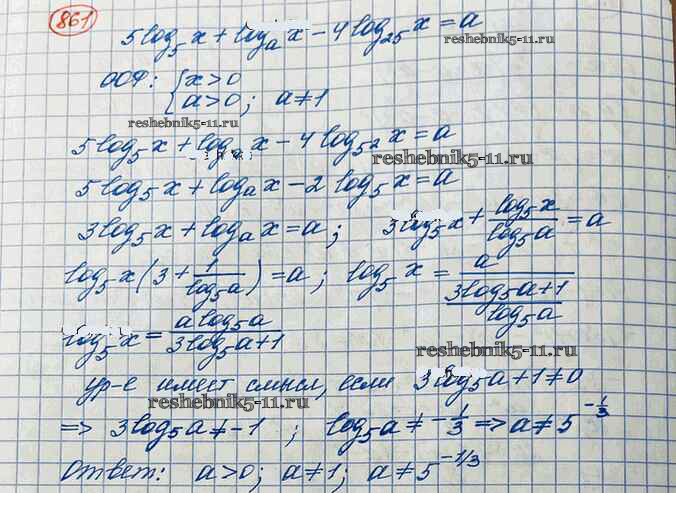 861
5log₅x + logₐx - 4log₂₅x = a
reshebnik5-11.ru
ООФ: { x > 0
a > 0; a ≠ 1
reshebnik5-11.ru
5log₅x + logₐx - 4log₅²x = a
reshebnik5-11.ru
5log₅x + logₐx - 2log₅x = a
3log₅x + logₐx = a; 3log₅x + log₅x/log₅a = a
log₅x(3 + 1/log₅a) = a; log₅x = a/((3log₅a+1)/log₅a)
log₅x = alog₅a/(3log₅a+1)
reshebnik5-11.ru
ур-е имеет смысл, если 3log₅a+1≠0
reshebnik5-11.ru
=> 3log₅a≠-1 ; log₅a≠-1/3 => a≠5^(-1/3)
Ответ: a>0; a≠1; a≠5^(-1/3)